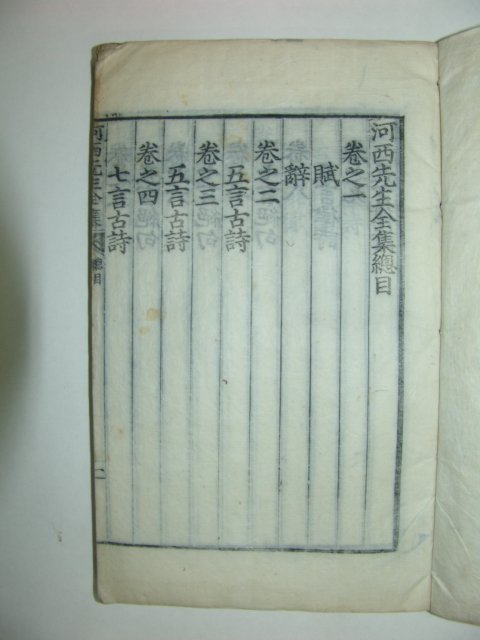 河西先生全集總目
卷之一
賦
辭
卷之二
五言古詩
卷之三
五言古詩
卷之四
七言古詩
河西先生全集 總目 一